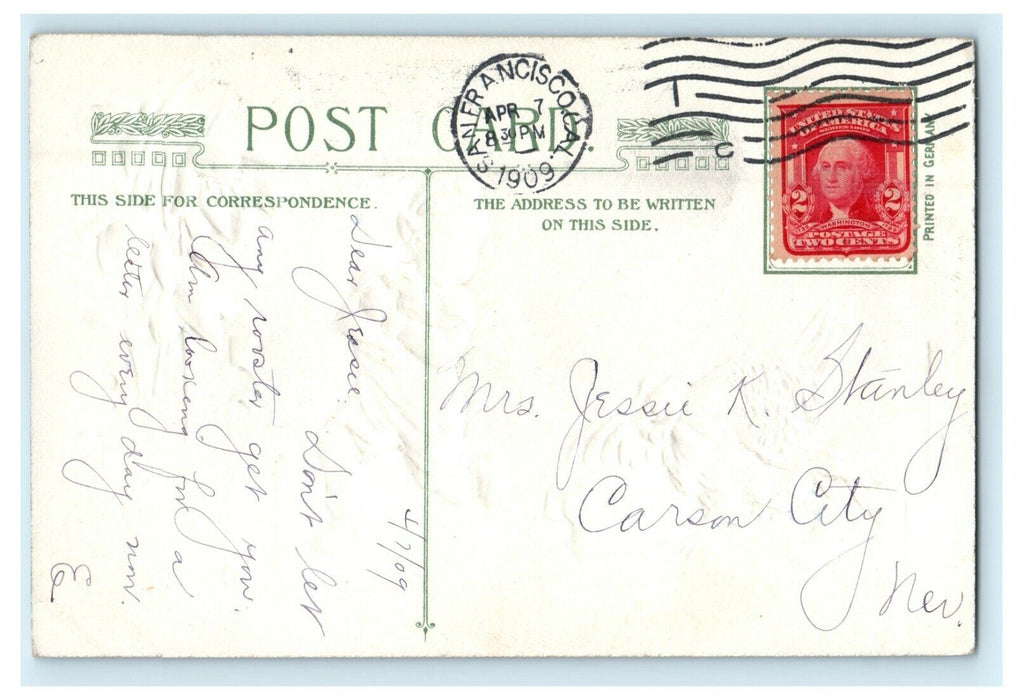 POST CARD
THIS SIDE FOR CORRESPONDENCE.
THE ADDRESS TO BE WRITTEN
ON THIS SIDE.
SAN FRANCISCO, CAL.
APR 7
8 30 PM
1909
1
C
UNITED STATES OF AMERICA
2 2
WASHINGTON
POSTAGE
TWO CENTS
PRINTED IN GERMANY
4/7/09
Dear Jessie. Don't let
any rooster get you.
Am looking for a
letter every day now.
E
Mrs. Jessie K. Stanley
Carson City
Nev.